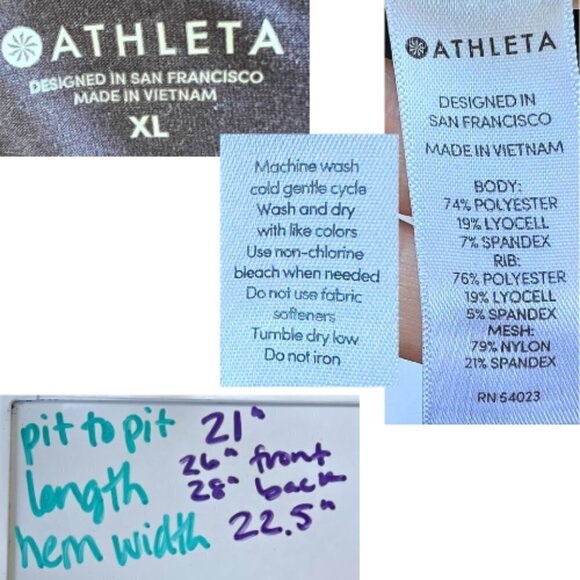 ATHLETA
DESIGNED IN SAN FRANCISCO
MADE IN VIETNAM
XL
Machine wash
cold gentle cycle
Wash and dry
with like colors
Use non-chlorine
bleach when needed
Do not use fabric
softeners
Tumble dry low
Do not iron
ATHLETA
DESIGNED IN
SAN FRANCISCO
MADE IN VIETNAM
BODY:
74% POLYESTER
19% LYOCELL
7% SPANDEX
RIB:
76% POLYESTER
19% LYOCELL
5% SPANDEX
MESH:
79% NYLON
21% SPANDEX
RN 54023
pit to pit 21"
length 26" front
28" back
hem width 22.5"